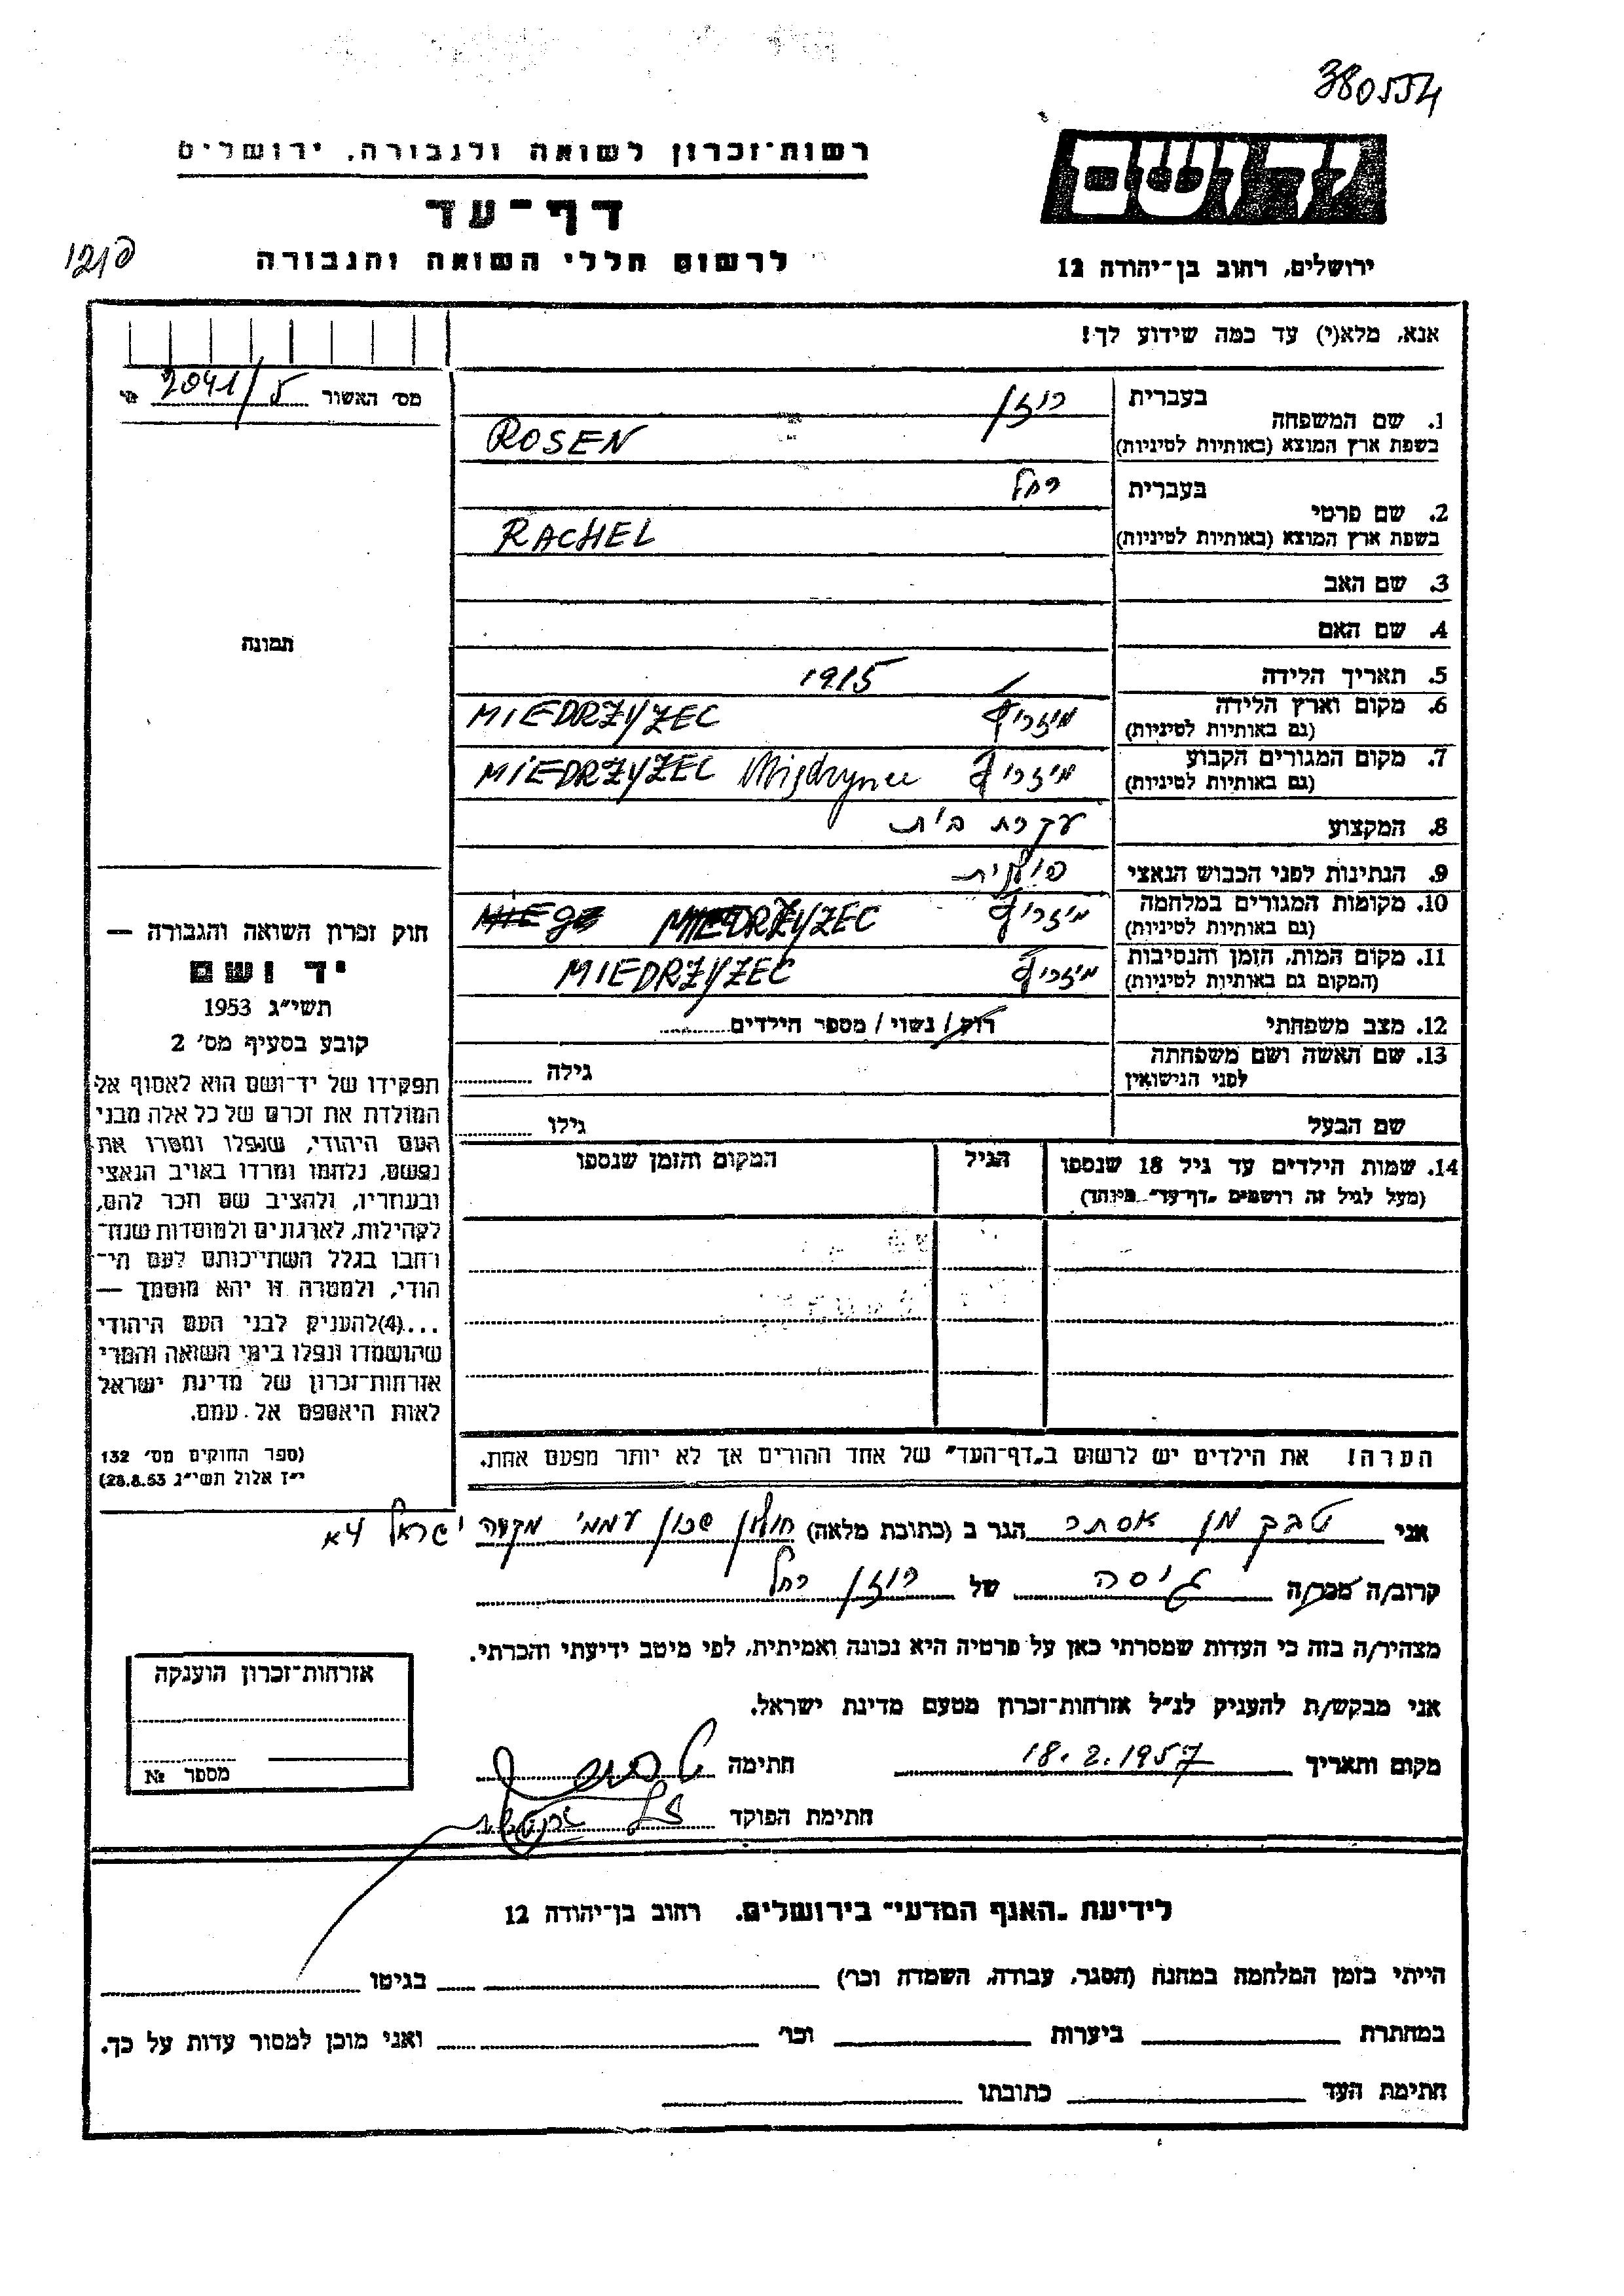 380554
רשות־זכרון לשואה ולגבורה, ירושלים
יד ושם
דף־עד
לרשום חללי השואה והגבורה
ירושלים, רחוב בן־יהודה 12
אנא, מלא(י) עד כמה שידוע לך!
מס׳ האשור 2041/5
בעברית רוזן
1. שם המשפחה
בשפת ארץ המוצא (באותיות לטיניות) ROSEN
בעברית רחל
2. שם פרטי
בשפת ארץ המוצא (באותיות לטיניות) RACHEL
3. שם האב
4. שם האם
תמונה
5. תאריך הלידה 1915
6. מקום וארץ הלידה מיזריץ MIEDRZYZEC
(גם באותיות לטיניות)
7. מקום המגורים הקבוע מיזריץ MIEDRZYZEC
(גם באותיות לטיניות)
8. המקצוע עקרת בית
9. הנתינות לפני הכבוש הנאצי פולנית
10. מקומות המגורים במלחמה מיזריץ MIEDRZYZEC
(גם באותיות לטיניות)
11. מקום המות, הזמן והנסיבות מיזריץ MIEDRZYZEC
(המקום גם באותיות לטיניות)
12. מצב משפחתי רוק/ נשוי/ מספר הילדים
13. שם האשה ושם משפחתה
לפני הנישואין
גילה
שם הבעל גילו
14. שמות הילדים עד גיל 18 שנספו
(מעל לגיל זה רושמים „דף־עד״ מיוחד)
הגיל
המקום והזמן שנספו
חוק זכרון השואה והגבורה —
יד ושם
תשי״ג 1953
קובע בסעיף מס׳ 2
תפקידו של יד־ושם הוא לאסוף אל
המולדת את זכרם של כל אלה מבני
העם היהודי, שנפלו ומסרו את
נפשם, נלחמו ומרדו באויב הנאצי
ובעוזריו, ולהציב שם וזכר להם,
לקהילות, לארגונים ולמוסדות שנח־
רבו בגלל השתייכותם לעם הי־
הודי, ולמטרה זו יהא מוסמך —
...(4)להעניק לבני העם היהודי
שהושמדו ונפלו בימי השואה והמרי
אזרחות־זכרון של מדינת ישראל
לאות היאספם אל עמם.
(ספר החוקים מס׳ 132
י״ז אלול תשי״ג 28.8.53)
הערה! את הילדים יש לרשום ב„דף־העד״ של אחד ההורים אך לא יותר מפעם אחת.
אני טבקמן אסתר הגר ב (כתובת מלאה) חולון שכון עממי מקוה ישראל 4א
קרוב/ה מכר/ה גיסה של רוזן רחל
מצהיר/ה בזה כי העדות שמסרתי כאן על פרטיה היא נכונה ואמיתית, לפי מיטב ידיעתי והכרתי.
אני מבקש/ת להעניק לנ״ל אזרחות־זכרון מטעם מדינת ישראל.
מקום ותאריך 18.2.1957 חתימה
חתימת הפוקד
אזרחות־זכרון הוענקה
מספר №
לידיעת „האגף המדעי״ בירושלים. רחוב בן־יהודה 12
הייתי בזמן המלחמה במחנה (הסגר, עבודה, השמדה וכו׳) בגיטו
במחתרת ביערות וכו׳ ואני מוכן למסור עדות על כך.
חתימת העד כתובתו